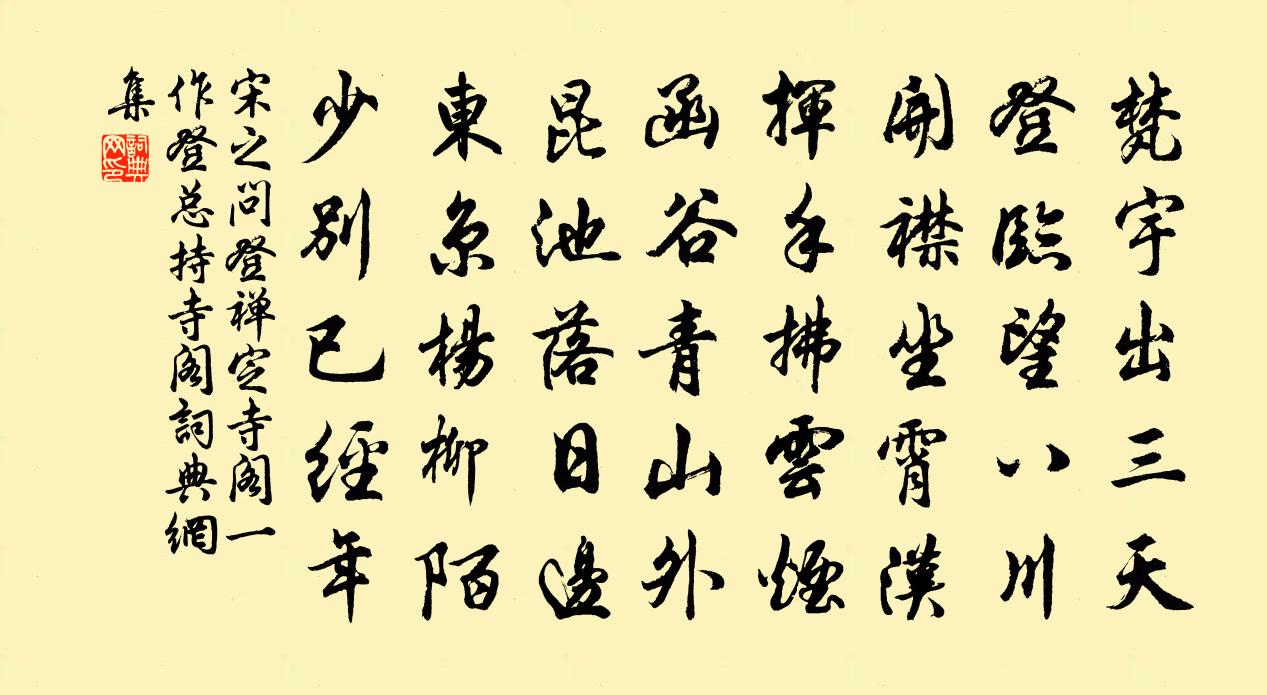 梵宇出三天
登臨望八川
開襟坐霄漢
揮手拂雲煙
函谷青山外
昆池落日邊
東京楊柳陌
少別已經年
宋之问登禅定寺阁一
作登总持寺阁詞典網
集
詞典
网印